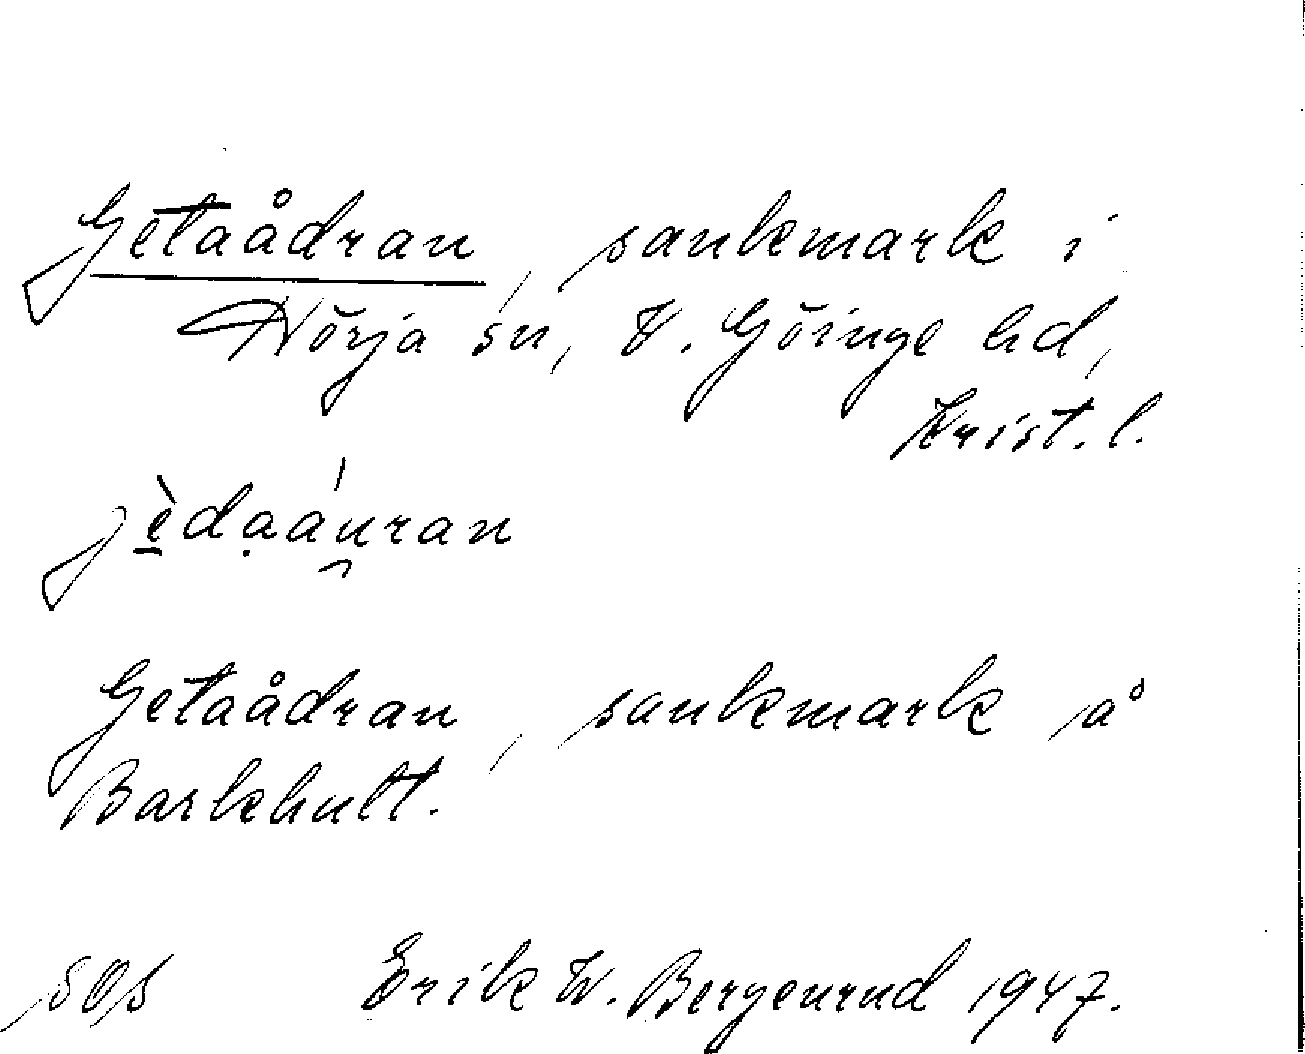 Getaådran, sankmark i
Nörja sn, V. Göinge hd,
Krist. l.
jèdạáu̯ran
Getaådran, sankmark på
Barkhult.
sos Erik W. Bergenrud 1947.